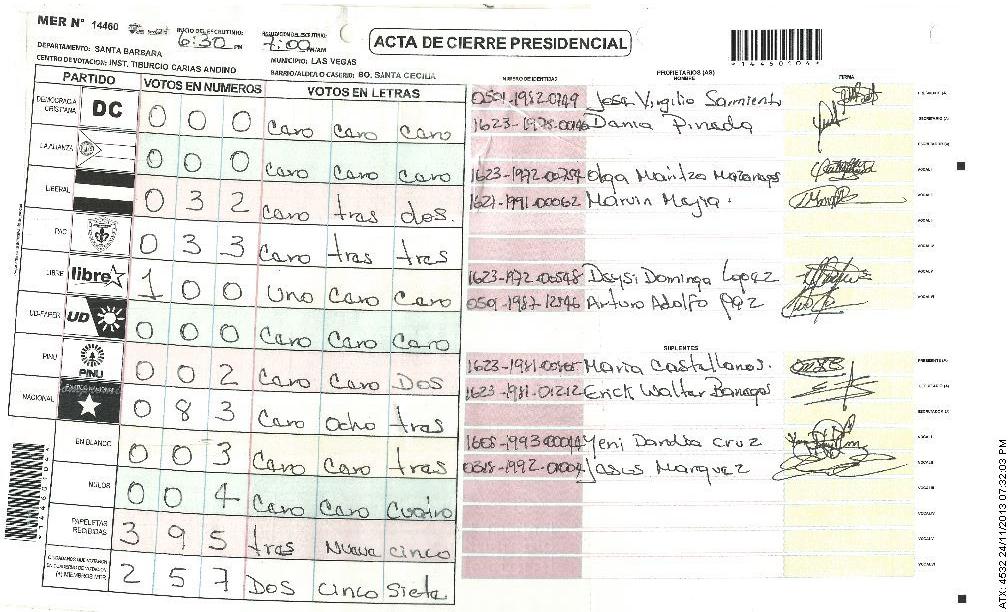 MER N° 14460
INICIO DEL ESCRUTINIO: 6:30 PM
7:00 PM/AM
ACTA DE CIERRE PRESIDENCIAL
*14460104*
DEPARTAMENTO: SANTA BARBARA
MUNICIPIO: LAS VEGAS
CENTRO DE VOTACION: INST. TIBURCIO CARIAS ANDINO
BARRIO/ALDEA O CASERIO: BO. SANTA CECILIA
PARTIDO VOTOS EN NUMEROS VOTOS EN LETRAS
DEMOCRACIA CRISTIANA DC 0 0 0 Caro Caro Caro
LA ALIANZA 0 0 0 Caro Caro Caro
LIBERAL 0 3 2 Caro tras dos.
PAC 0 3 3 Caro tras tras
LIBRE libre 1 0 0 Uno Caro Caro
UD-FAPER UD 0 0 0 Caro Caro Caro
PINU PINU 0 0 2 Caro Caro DOS
NACIONAL 0 8 3 Caro Ocho tras
EN BLANCO 0 0 3 Caro Caro tras
NULOS 0 0 4 Caro Caro Cuatro
PAPELETAS RECIBIDAS 3 9 5 tras Nueva cinco
2 5 7 DOS cinco Sieta
NUMERO DE IDENTIDAD
PROPIETARIOS (AS)
NOMBRE
FIRMA
0501-1982-0749 Jose Virgilio Sarmiento
1623-1978-00146 Dania Pineda
SECRETARIO (A)
1623-1972-00754 Olga Maritza
VOCAL I
1627-1991-00062 Marvin Majia.
1623-1972-00548 Daysi Dominga Lopaz
VOCAL V
0501-1987-12546 Arturo Adolfo Paz
VOCAL VI
SUPLENTES
Maria Castellanos.
PRESIDENTE (A)
1623-1981-01212 Erick Walter Banagas
SECRETARIO (A)
1608-1993-00044 Yeni Cruz
VOCAL I
0318-1992-01004 Jasus Marquez
VOCAL II
VOCAL III
VOCAL IV
VOCAL V
VOCAL VI
*14460104*
ATX: 4532 24/11/2013 07:32:03 PM